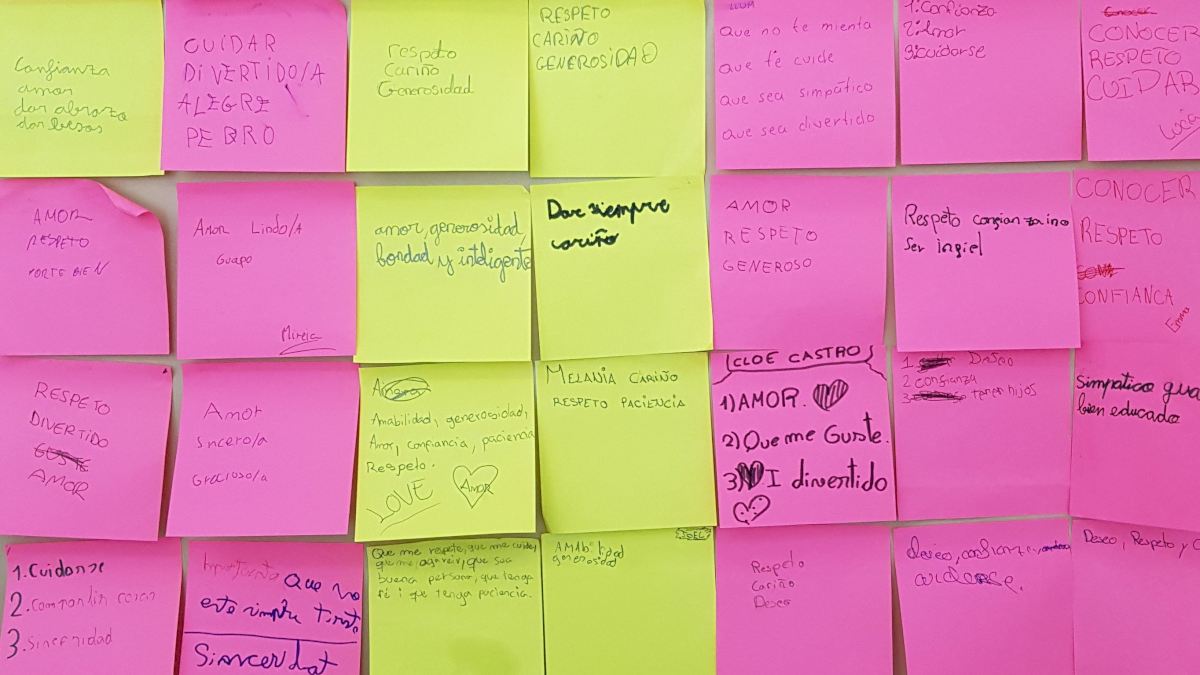 Confianza
amor
dar abrazo
dar besos
CUIDAR
DIVERTIDO/A
ALEGRE
PEDRO
respeto
Cariño
Generosidad
RESPETO
CARIÑO
GENEROSIDAD
que no te mienta
que te cuide
que sea simpático
que sea divertido
1.Confianza
2.Amor
3.Cuidarse
CONOCER
RESPETO
CUIDAR
Lucía
AMOR
RESPETO
PORTE BIEN
AMOR LINDO/A
GUAPO
Mireia
amor, generosidad,
bondad y inteligente
Dar siempre
cariño
AMOR
RESPETO
GENEROSO
Respeto confianza ino
ser infiel
CONOCER
RESPETO
CONFIANCA
Emma
RESPETO
DIVERTIDO
GUSTE
AMOR
Amor
Sncero/a
Gracioso/a
Amabilidad, generosidad,
Amor, confianza, paciencia
Respeto.
LOVE
AMOR
MELANIA CARIÑO
RESPETO PACIENCIA
CLOE CASTRO
1) AMOR.
2) Que me Guste.
3) I divertido
1. DESEO
2 confianza
3. tener hijos
Simpatico gua
bien educado
1. Cuidarse
2. Compartir cosas
3. Sinceridad
Importante Que no
esté simpre triste
Sinceridat
Que me respete, que me cuide,
que me apoye, que sea
buena persona, que tenga
fé i que tenga paciencia.
JOEL
AMAbilidad
generosidad
Respeto
Cariño
Deseo
deseo, confianza,
cuidarse.
Deseo, Respeto y C